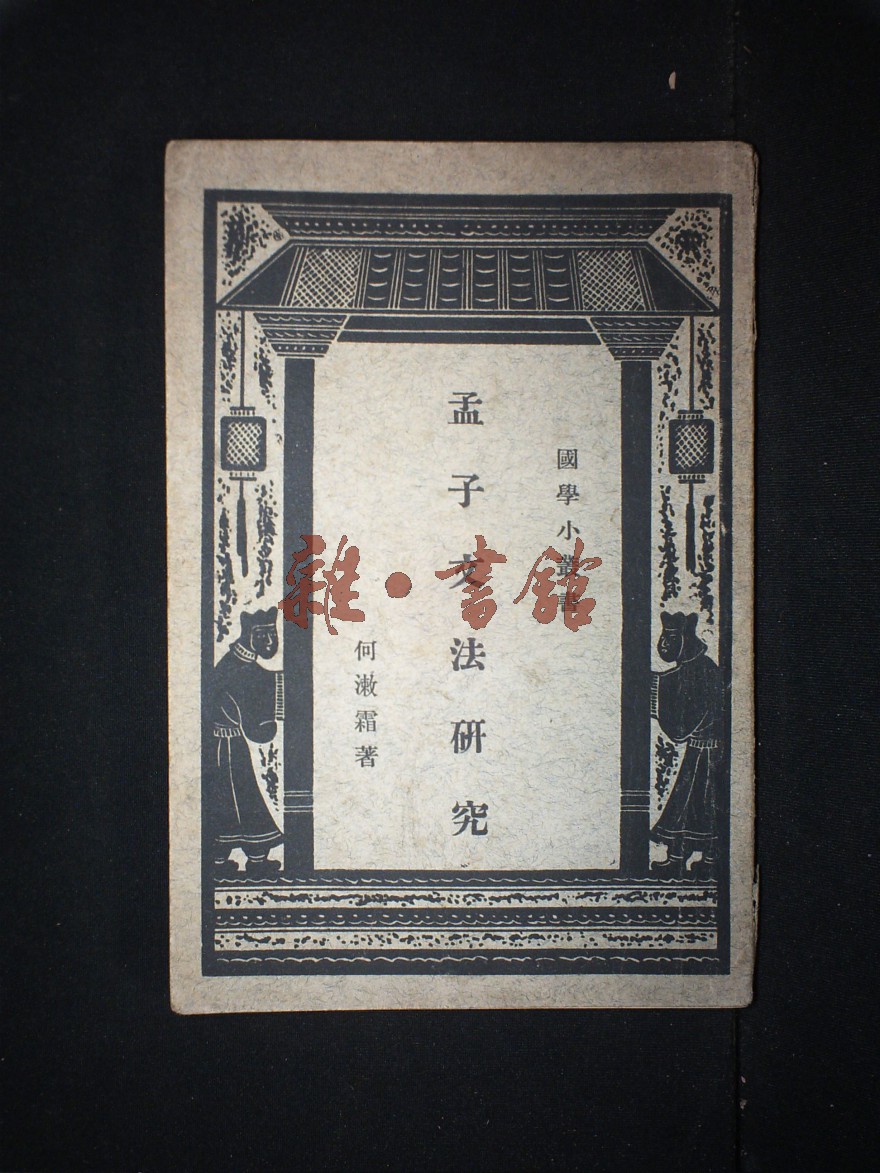 國學小叢書
孟子文法研究
何漱霜著
雜·書館